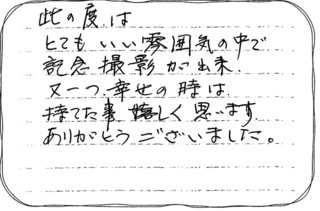 此の度は
とてもいい雰囲気の中で
記念撮影が出来
又一つ、幸せの時は
持てた事嬉しく思います
ありがとうございました。